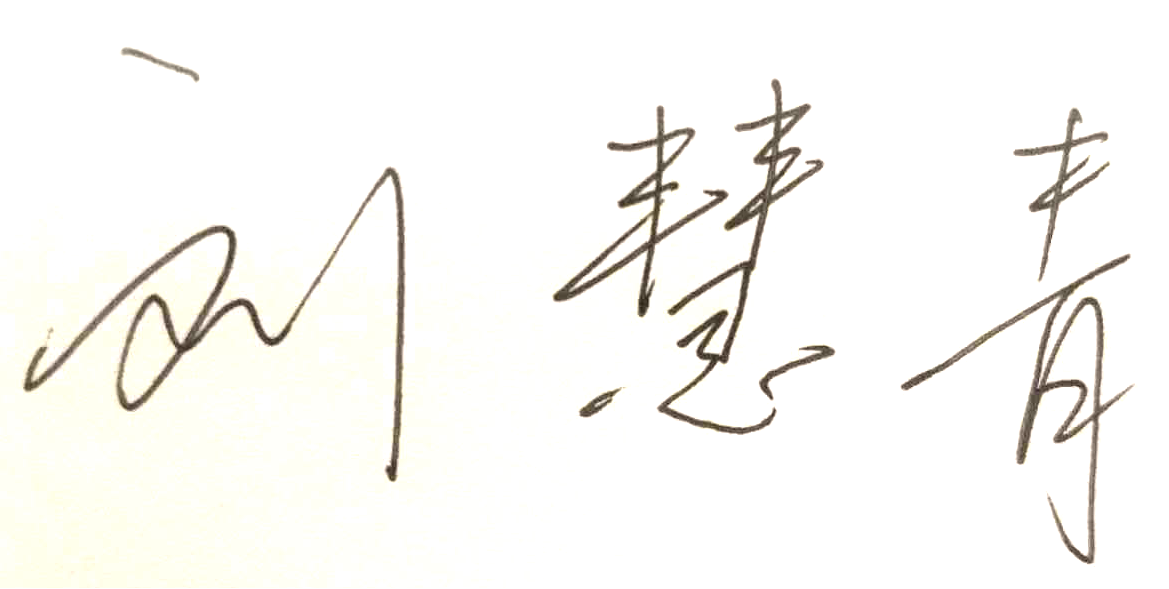 刘慧青